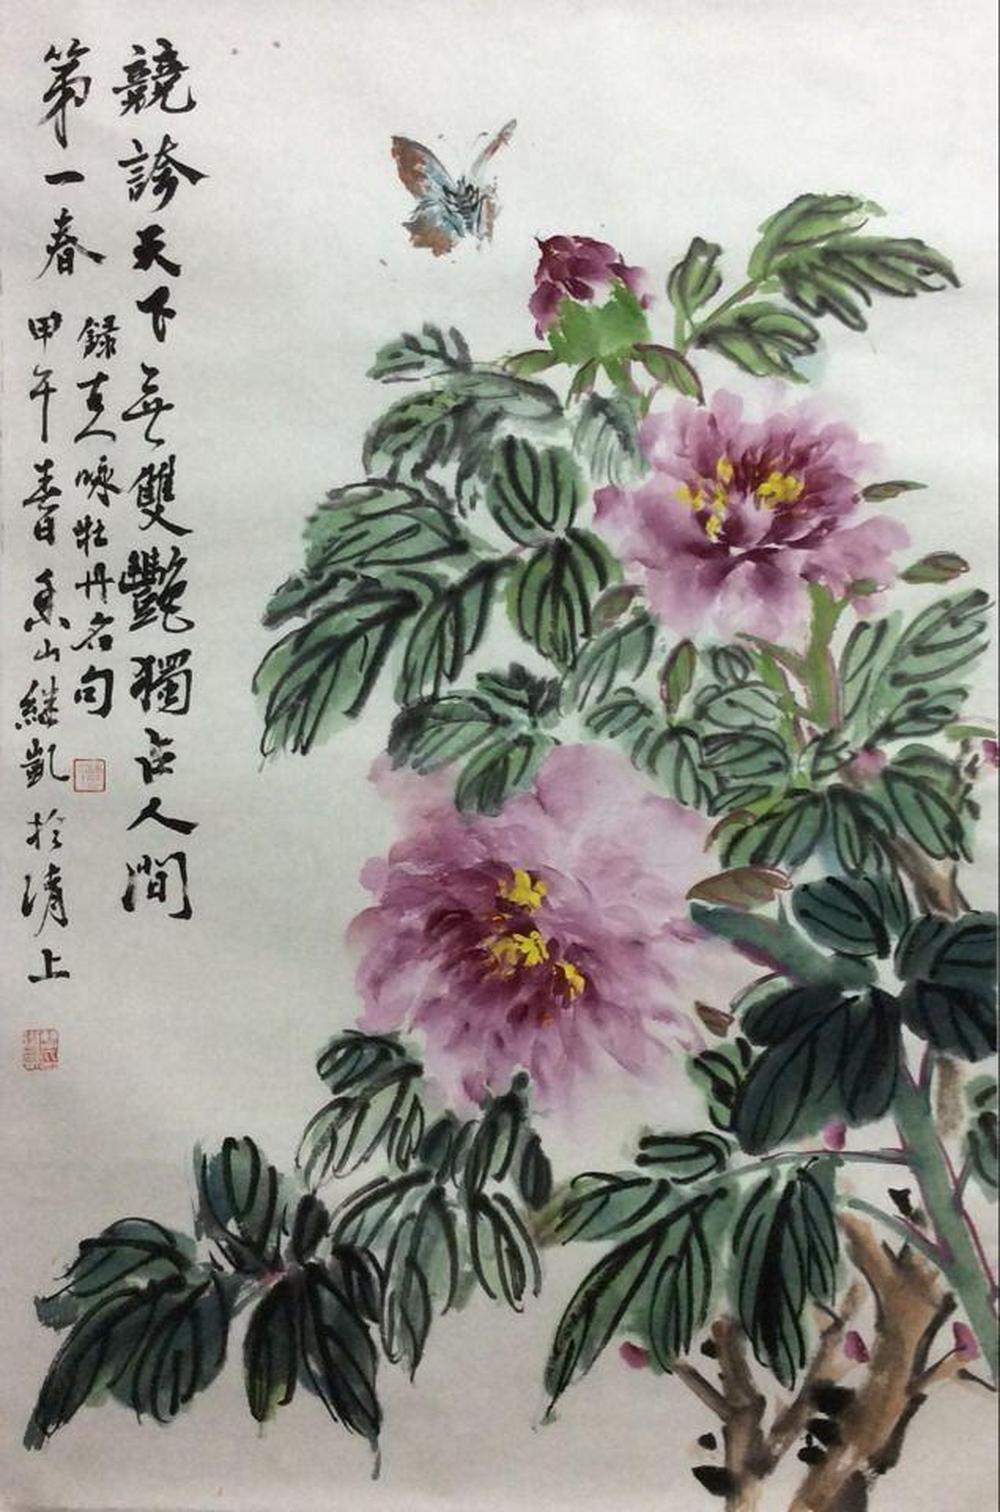 競誇天下無雙艷獨占人間
第一春
錄古人咏牡丹名句
甲午春月泰山繼凱於清上